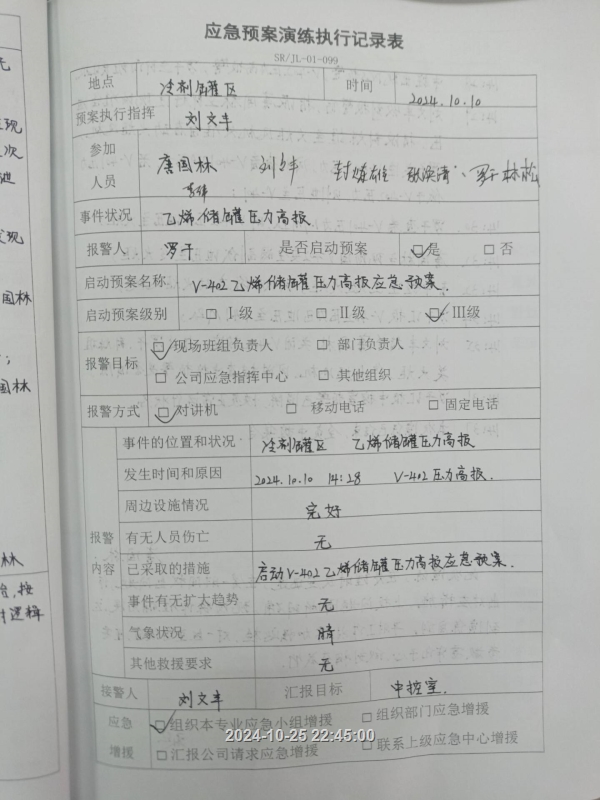 应急预案演练执行记录表
SR/JL-01-099
地点 冷剂罐区 时间 2024.10.10
预案执行指挥 刘文丰
参加人员 唐国林 封炼雄 罗干 林松
事件状况 乙烯储罐压力高报
报警人 罗干 是否启动预案 ☑是 □否
启动预案名称 V-402乙烯储罐压力高报应急预案.
启动预案级别 □Ⅰ级 □Ⅱ级 ☑Ⅲ级
报警目标 ☑现场班组负责人 □部门负责人
□公司应急指挥中心 □其他组织
报警方式 ☑对讲机 □移动电话 □固定电话
报警内容
事件的位置和状况 冷剂罐区 乙烯储罐压力高报
发生时间和原因 2024.10.10 14:28 V-402压力高报.
周边设施情况 完好
有无人员伤亡 无
已采取的措施 启动V-402乙烯储罐压力高报应急预案.
事件有无扩大趋势 无
气象状况 晴
其他救援要求 无
接警人 刘文丰 汇报目标 中控室.
应急增援 ☑组织本专业应急小组增援 □组织部门应急增援
□汇报公司请求应急增援 □联系上级应急中心增援
2024-10-25 22:45:00
元
现
次
进
发现
国林
;
国林
林
按
时选择